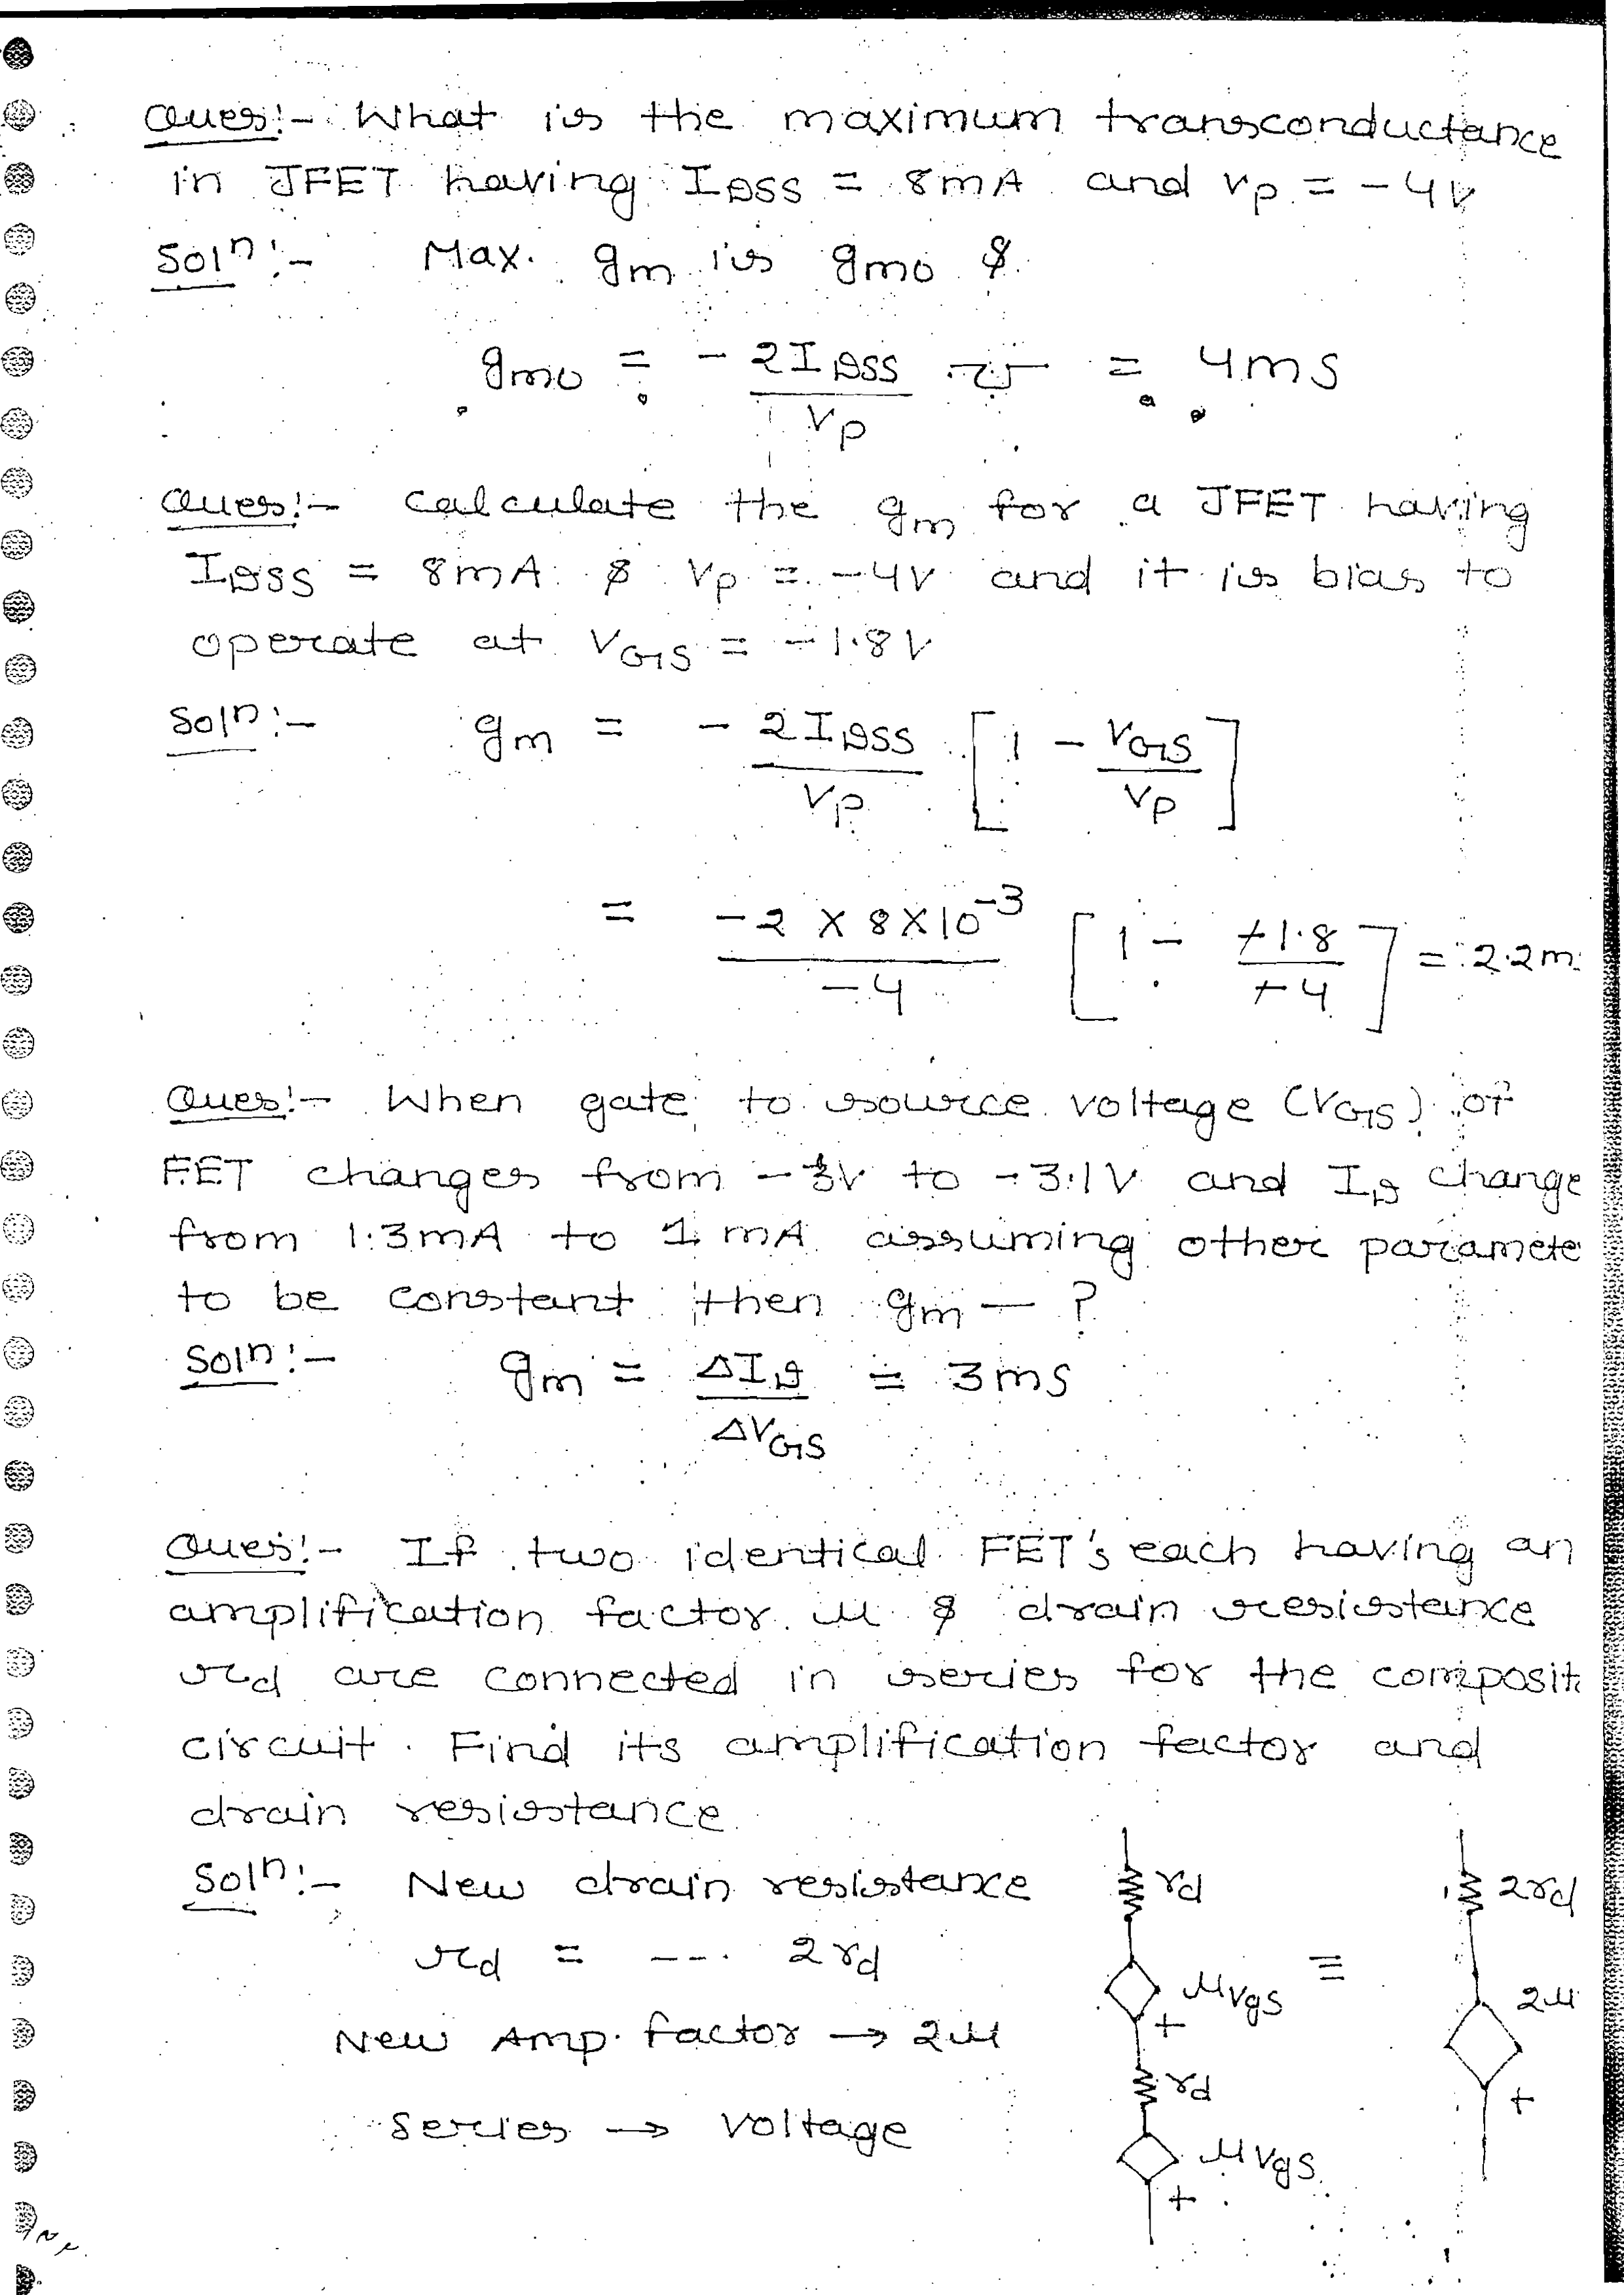 Ques:- What is the maximum transconductance
in JFET having IDSS = 8mA and Vp = -4V
Soln:- Max. gm is gmo &
gmo = - 2IDSS / Vp = 4ms
Ques:- Calculate the gm for a JFET having
IDSS = 8mA & Vp = -4V and it is bias to
operate at VGS = -1.8V
Soln:- gm = - 2IDSS / Vp [1 - VGS / Vp]
= -2 X 8X10^-3 / -4 [1 - -1.8 / -4] = 2.2m
Ques:- When gate to source voltage (VGS) of
FET changes from -3V to -3.1V and ID change
from 1.3mA to 1 mA assuming other paramete
to be constant then gm — ?
Soln:- gm = ΔID / ΔVGS = 3ms
Ques:- If two identical FET's each having an
amplification factor μ & drain resistance
rd are connected in series for the composit
circuit. Find its amplification factor and
drain resistance.
Soln:- New drain resistance
rd = --- 2rd
New Amp. factor → 2μ
series → voltage
rd
μVgs
+
rd
μVgs
+
≡
2rd
2μ
+